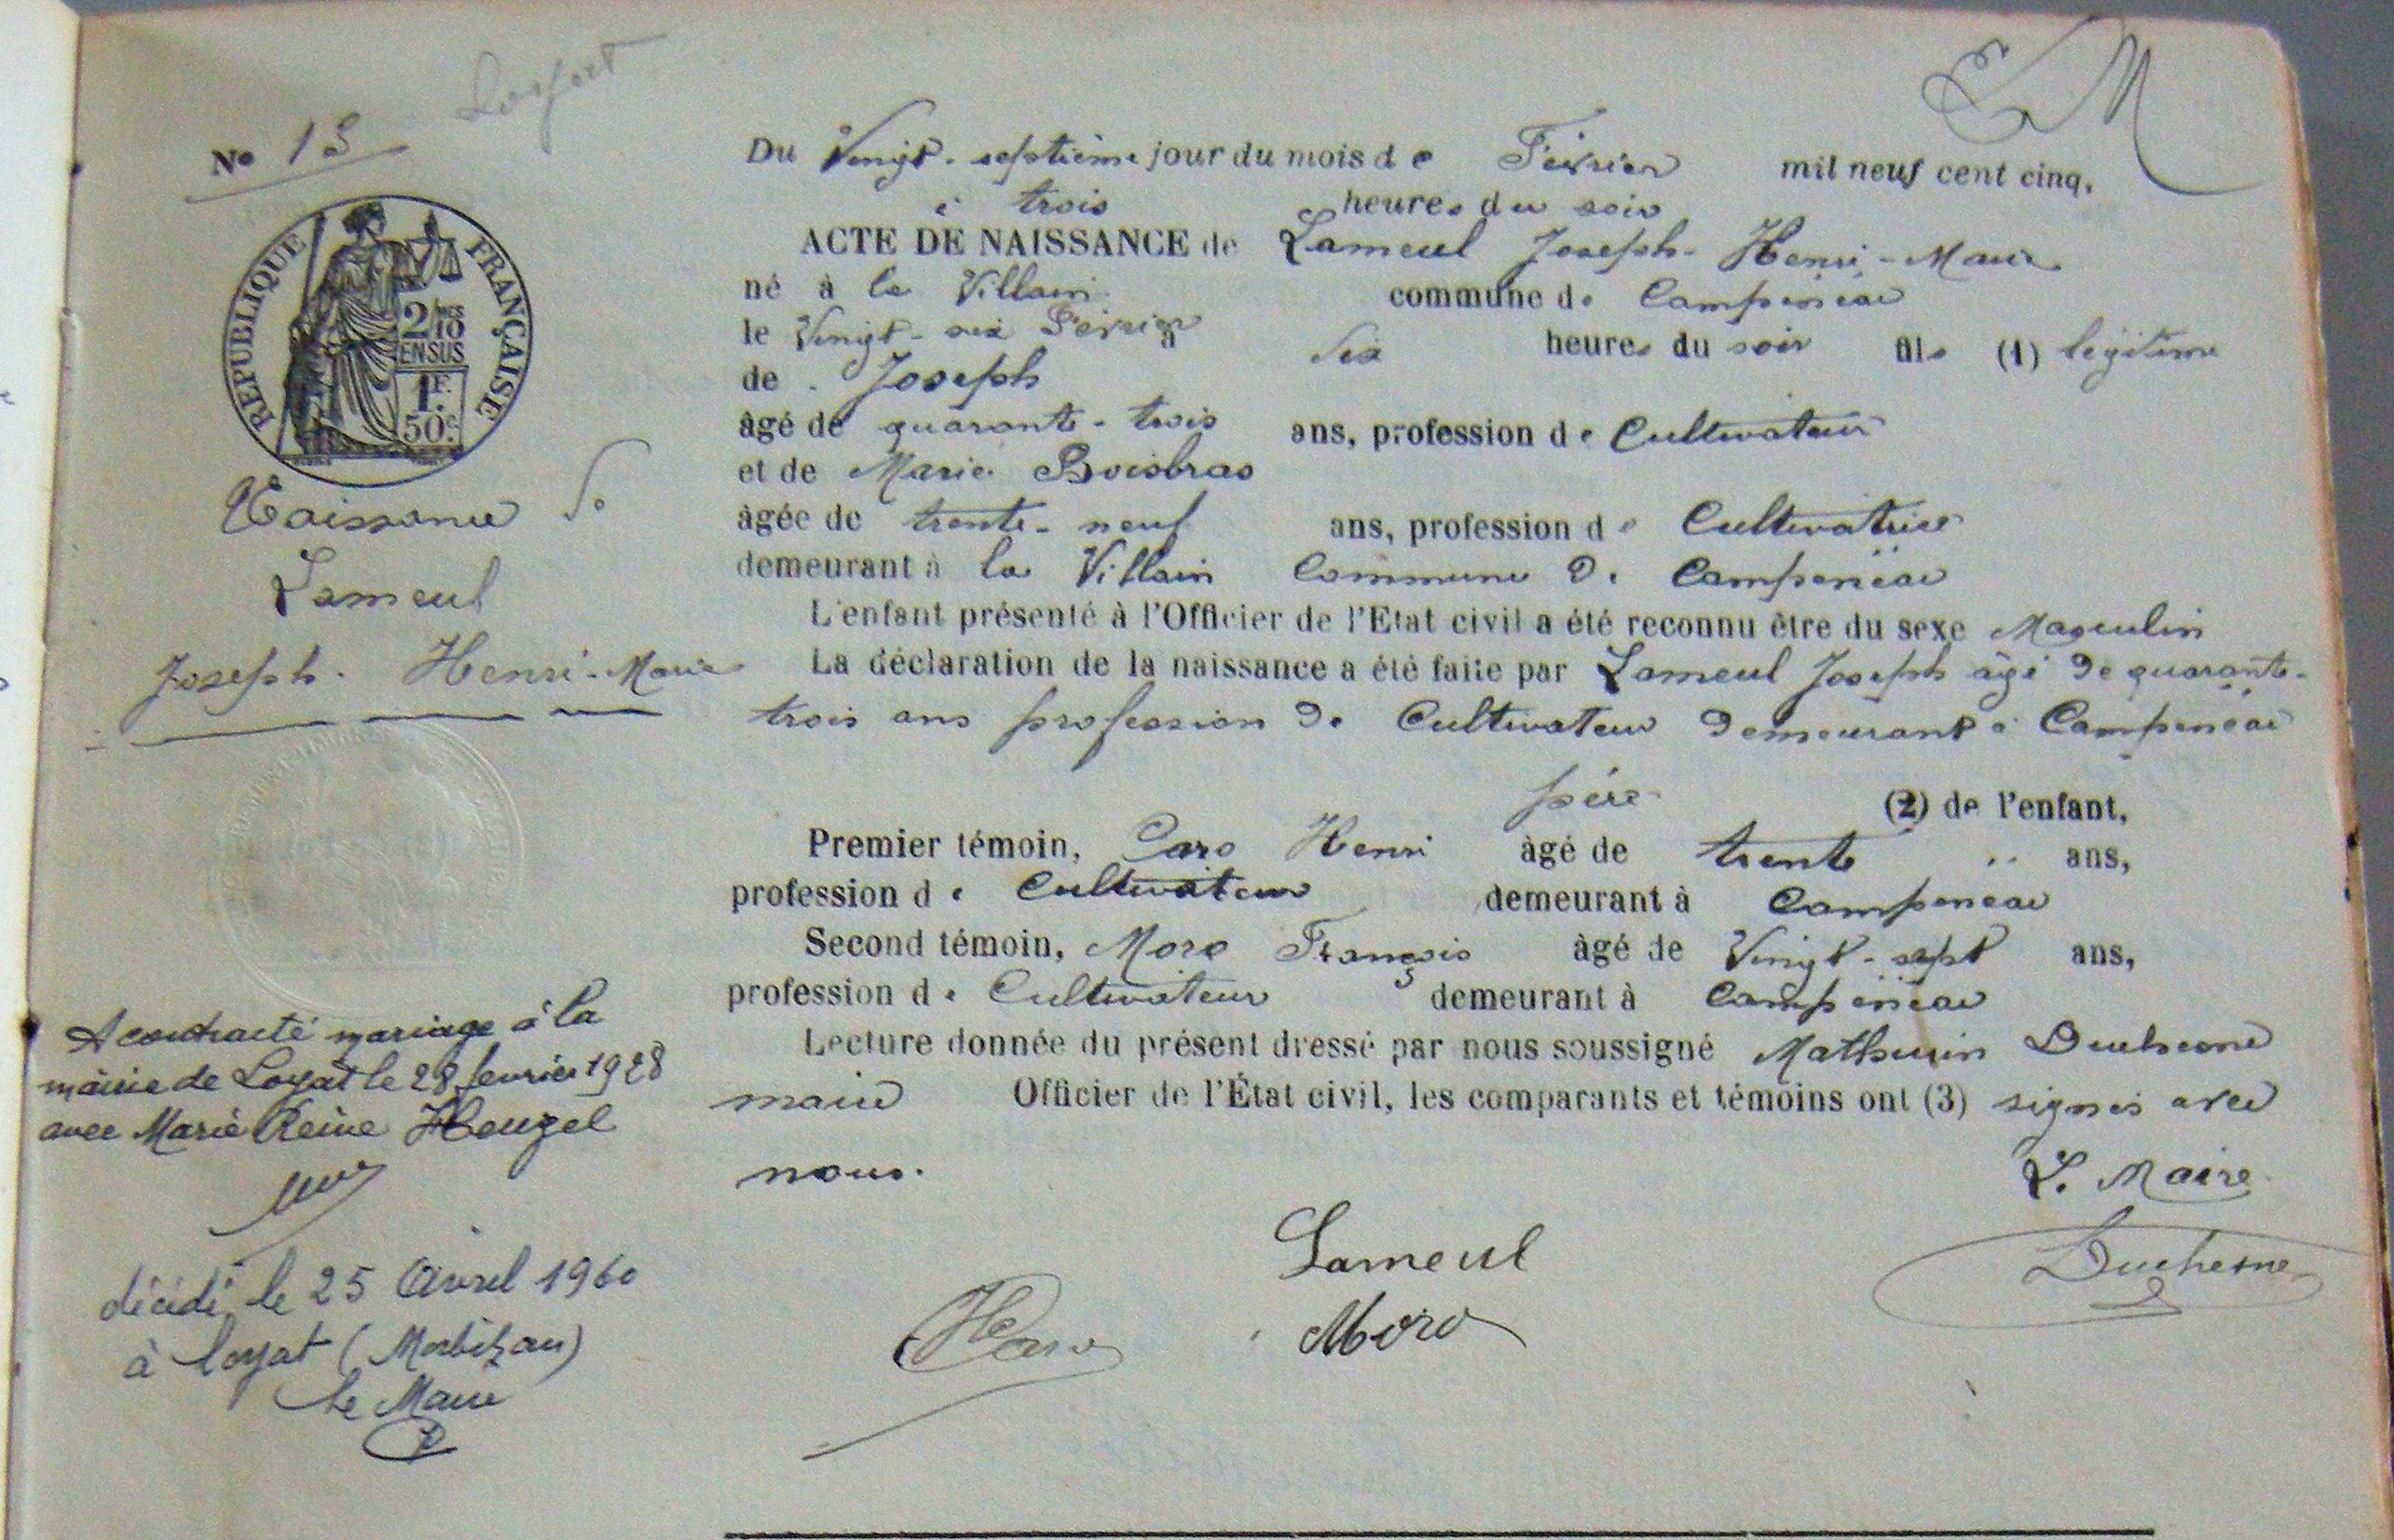 Loyat
No 13
REPUBLIQUE FRANÇAISE
2/10MES
EN SUS
1F.
50c.
Naissance
Lameul
Joseph-Henri-Marie
A contracté mariage à la
mairie de Loyat le 28 février 1928
avec Marie Reine
décédé le 25 Avril 1960
à Loyat (Morbihan)
Le Maire
Du Vingt-septième jour du mois de Février mil neuf cent cinq,
à trois heures du soir
ACTE DE NAISSANCE de Lameul Joseph-Henri-Marie
né à la Villain commune de Campénéac
le Vingt-six Février à six heures du soir fils (1) légitime
de Joseph
âgé de quarante-trois ans, profession de Cultivateur
et de Marie Boisbras
âgée de trente-neuf ans, profession de Cultivatrice
demeurant à la Villain Commune de Campénéac
L'enfant présenté à l'Officier de l'Etat civil a été reconnu être du sexe Masculin
La déclaration de la naissance a été faite par Lameul Joseph âgé de quarante-
trois ans profession de Cultivateur demeurant à Campénéac
père (2) de l'enfant,
Premier témoin, Caro Henri âgé de trente ans,
profession de Cultivateur demeurant à Campénéac
Second témoin, Moro François âgé de Vingt-sept ans,
profession de Cultivateur demeurant à Campénéac
Lecture donnée du présent dressé par nous soussigné Mathurin Duchesne
maire Officier de l'État civil, les comparants et témoins ont (3) signés avec
nous.
L. Maire
Lameul
Duchesne
H Caro
Moro